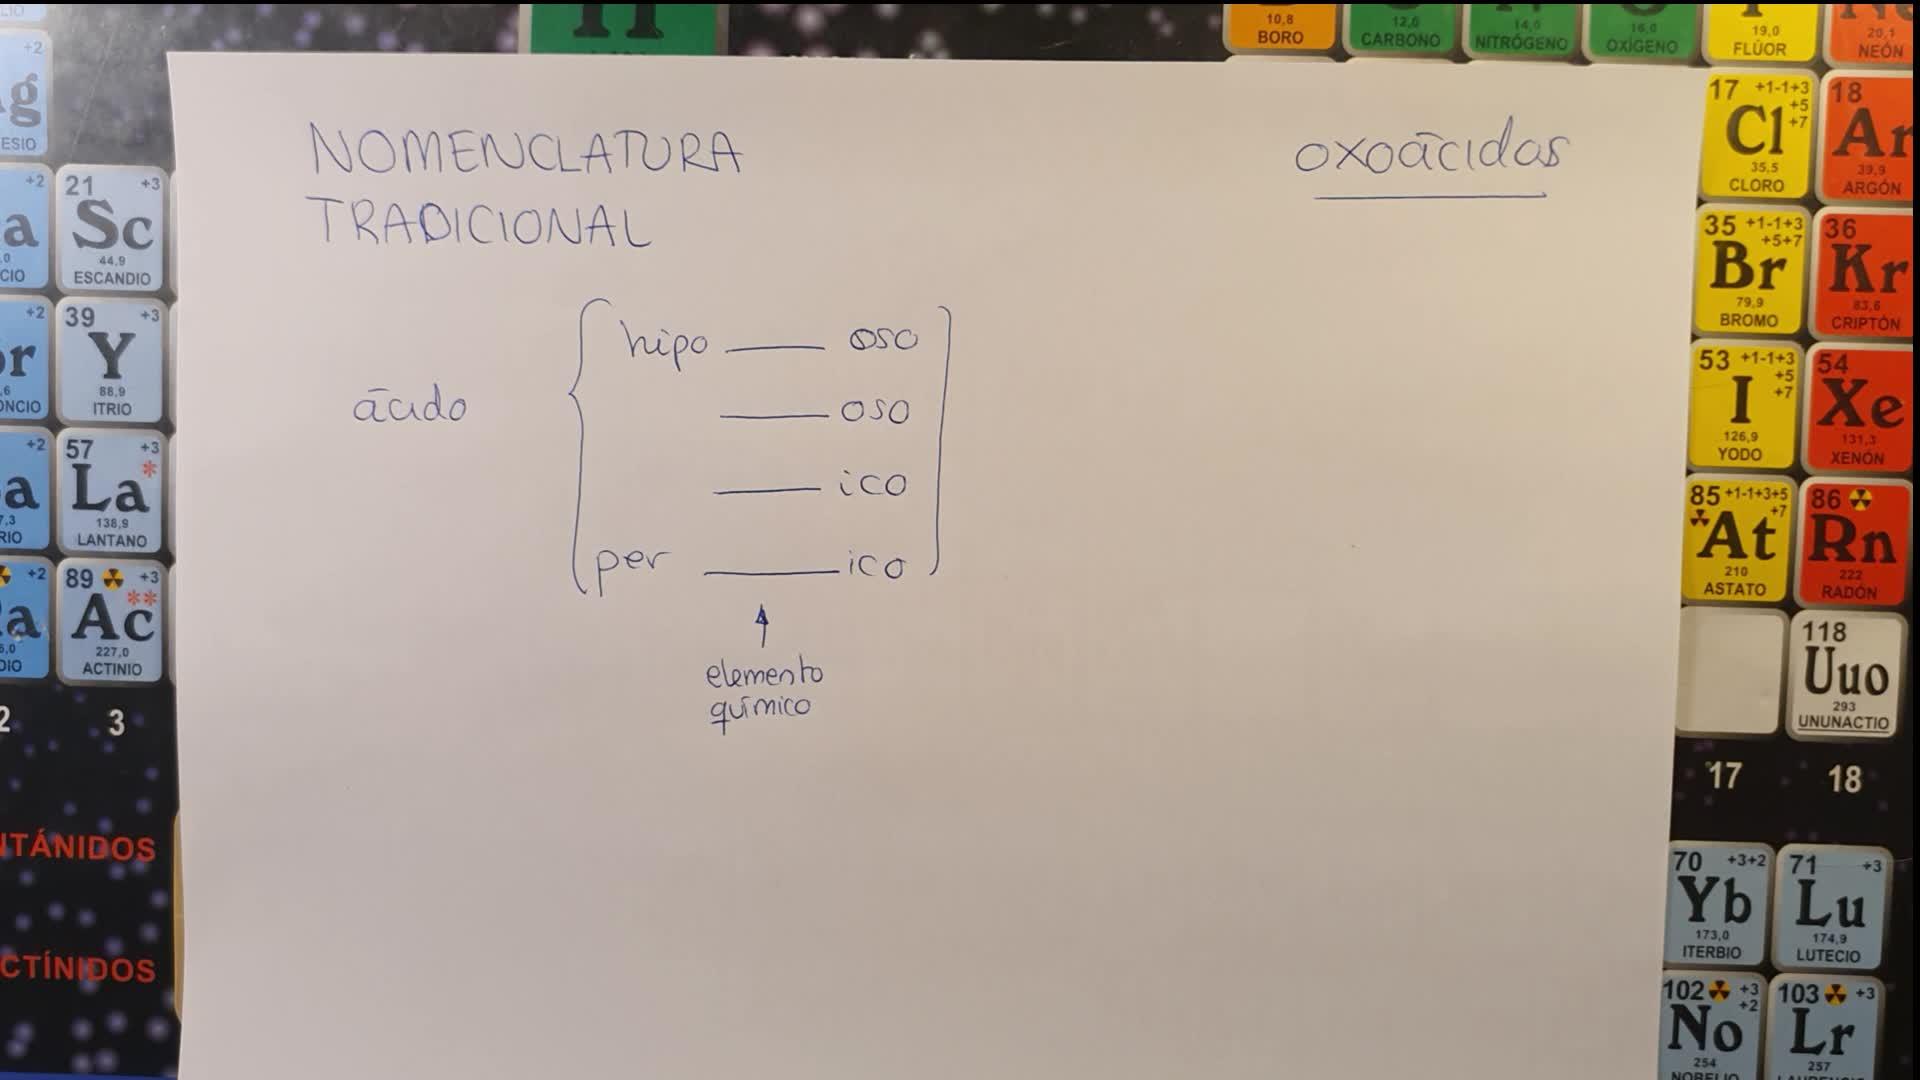 10,8
BORO
12,0
CARBONO
14,0
NITRÓGENO
16,0
OXÍGENO
19,0
FLÚOR
20,1
NEÓN
NOMENCLATURA
TRADICIONAL
oxoácidos
ácido
hipo ____ oso
____ oso
____ ico
per ____ ico
elemento
químico
+2
ESIO
+2
CIO
21 +3
Sc
44,9
ESCANDIO
+2
ONCIO
39 +3
Y
88,9
ITRIO
+2
RIO
57 +3
La *
138,9
LANTANO
+2
DIO
89 +3
Ac **
227,0
ACTINIO
2 3
NTÁNIDOS
CTÍNIDOS
17 +1-1+3
+5
+7
Cl
35,5
CLORO
18
Ar
39,9
ARGÓN
35 +1-1+3
+5+7
Br
79,9
BROMO
36
Kr
83,6
CRIPTÓN
53 +1-1+3
+5
+7
I
126,9
YODO
54
Xe
131,3
XENÓN
85 +1-1+3+5
+7
At
210
ASTATO
86
Rn
222
RADÓN
118
Uuo
293
UNUNACTIO
17 18
70 +3+2
Yb
173,0
ITERBIO
71 +3
Lu
174,9
LUTECIO
102 +3
+2
No
254
NOBELIO
103 +3
Lr
257